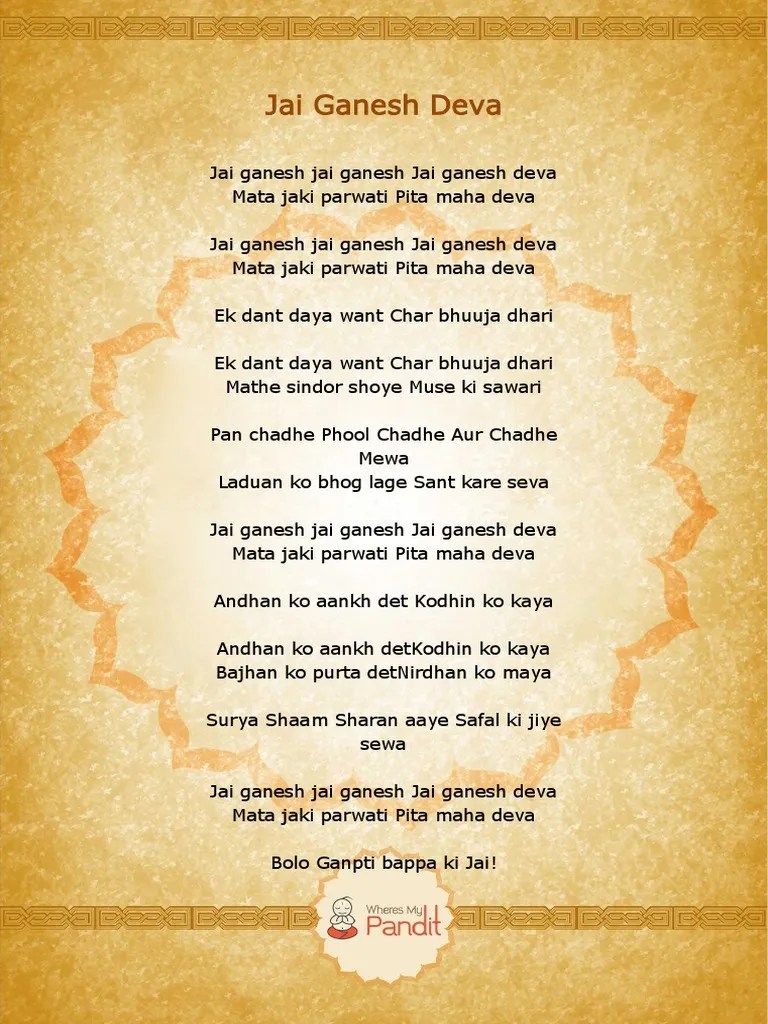 Jai Ganesh Deva
Jai ganesh jai ganesh Jai ganesh deva
Mata jaki parwati Pita maha deva
Jai ganesh jai ganesh Jai ganesh deva
Mata jaki parwati Pita maha deva
Ek dant daya want Char bhuuja dhari
Ek dant daya want Char bhuuja dhari
Mathe sindor shoye Muse ki sawari
Pan chadhe Phool Chadhe Aur Chadhe
Mewa
Laduan ko bhog lage Sant kare seva
Jai ganesh jai ganesh Jai ganesh deva
Mata jaki parwati Pita maha deva
Andhan ko aankh det Kodhin ko kaya
Andhan ko aankh detKodhin ko kaya
Bajhan ko purta detNirdhan ko maya
Surya Shaam Sharan aaye Safal ki jiye
sewa
Jai ganesh jai ganesh Jai ganesh deva
Mata jaki parwati Pita maha deva
Bolo Ganpti bappa ki Jai!
Wheres My
Pandit